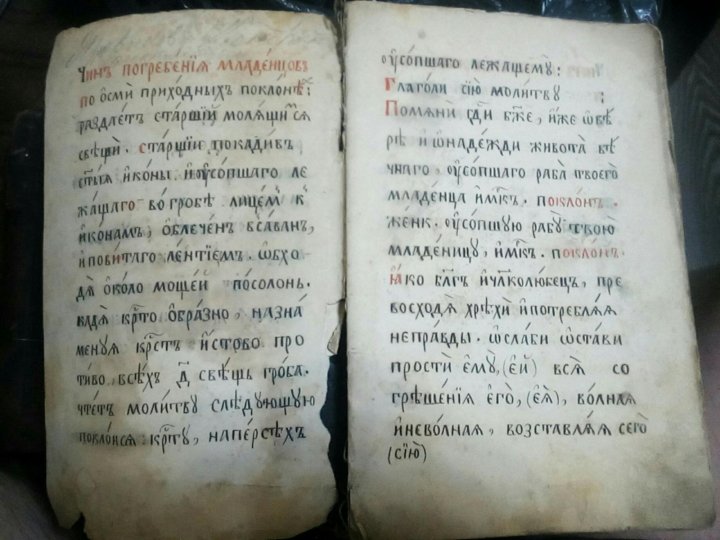 Чинъ погребенїѧ младе́нцовъ
по осмѝ прихо́дныхъ покло́нѣхъ:
раздае́тъ ста́ршїй молѧ́щимсѧ
свѣщѝ. ста́ршїи покади́въ
ст҃ы́ѧ и҆ко́ны. и҆ ᲂу҆со́пшаго ле
жа́щаго во гро́бѣ лице́мъ к
и҆ко́намъ, ѻ҆блече́н в са́ван,
и҆ пови́таго ле́нтїем. ѡ҆бхо
дѧ̀ о́коло моще́й по́солонь.
кадѧ̀ крⷭ҇то ѻ҆бра́зно, назна́
менуѧ крⷭ҇стъ и҆́стово про
ти́во всѣ́хъ д҃ свѣ́щь гро́ба.
чте́тъ моли́тву слѣ́дующую
покло́нсѧ крⷭ҇ту, на пе́рстѣхъ
ᲂу҆со́пшаго лежа́щемꙋ̀:
Глаго́ли сїю̀ моли́тву ;
Помѧнѝ гдⷭ҇и бж҃е, и҆́же ѡ҆ вѣ́
рѣ и҆ ѡ҆ наде́жди живота̀ вѣ́
чнаго, ᲂу҆со́пшаго раба̀ твоего̀
младе́нца и҆́мкъ. покло́нъ.
же́нк. ᲂу҆со́пшую рабꙋ̀ твою̀
младе́ницу, и҆́мкъ. покло́нъ.
Ꙗ҆́ко бл҃гъ и҆ чл҃колю́бецъ, пре
восходѧ̀ хрѣхѝ и҆ потреблѧ́ѧ
непра́вды. ѡ҆сла́би ѡ҆ста́ви
простѝ є҆мꙋ̀, (є҆́й) всѧ̀ со
грѣше́нїѧ є҆гѡ̀, (є҆ѧ̀), во́лнаѧ
и҆ нево́лнаѧ, возставлѧ́ѧ сего̀
(сїю̀)